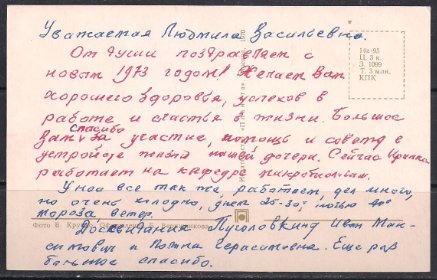 Уважаемая Людмила Васильевна.
От души поздравляем с
новым 1973 годом! Желаем Вам
хорошего здоровья, успехов в
работе и счастья в жизни. Большое
Вам спасибо за участие, помощь и советы в
устройстве жизни нашей дочери. Сейчас
работает на кафедре микробиологии.
У нас все так же, работаем, дел много,
но очень холодно, днем 25-30°, ночью 40°
мороза ветер.
До свидания Пуголовкины Иван Мак-
симович и Герасимовна. Еще раз
большое спасибо.
14z-95
Ц. 3 к.
З. 1099
Т. 3 млн.
КПК
Фото В.